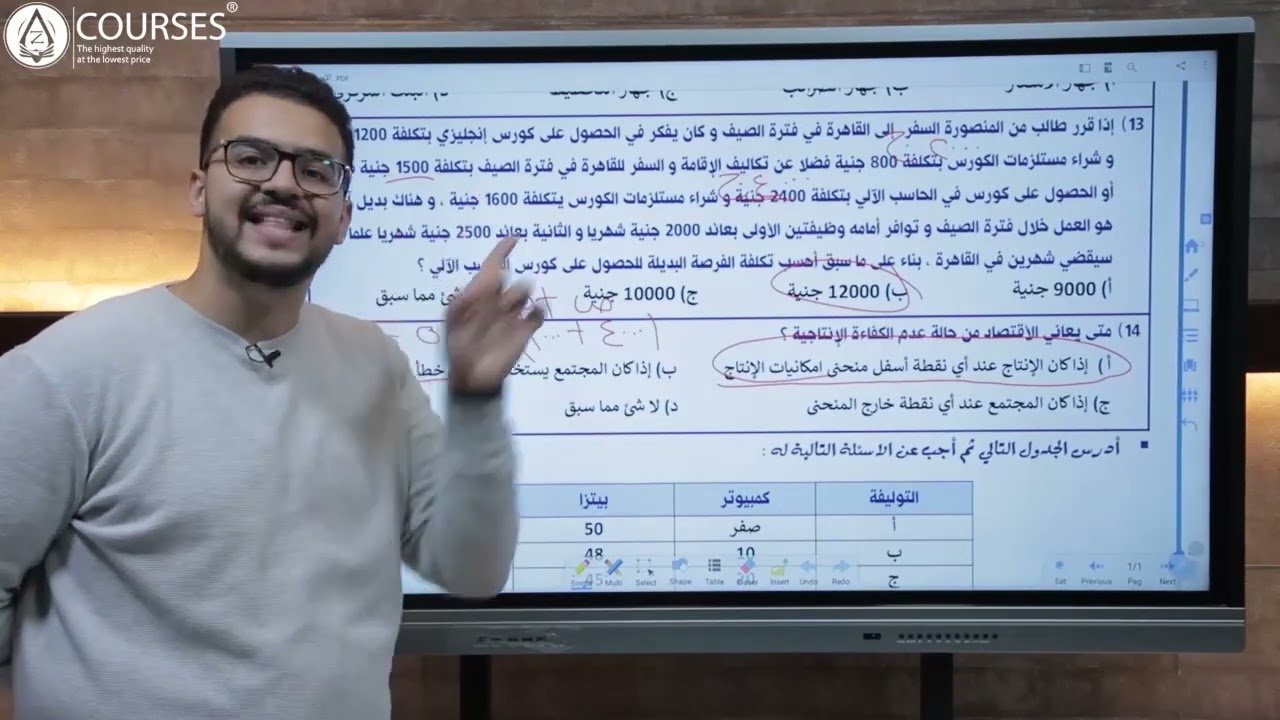 COURSES®
The highest quality
at the lowest price
PDF
13) إذا قرر طالب من المنصورة السفر إلى القاهرة في فترة الصيف و كان يفكر في الحصول على كورس إنجليزي بتكلفة 1200
و شراء مستلزمات الكورس بتكلفة 800 جنية فضلا عن تكاليف الإقامة و السفر للقاهرة في فترة الصيف بتكلفة 1500 جنية
أو الحصول على كورس في الحاسب الآلي بتكلفة 2400 جنية و شراء مستلزمات الكورس يتكلفة 1600 جنية ، و هناك بديل
هو العمل خلال فترة الصيف و توافر أمامه وظيفتين الأولى بعائد 2000 جنية شهريا و الثانية بعائد 2500 جنية شهريا علما
سيقضي شهرين في القاهرة ، بناء على ما سبق أحسب تكلفة الفرصة البديلة للحصول على كورس الآلي ؟
أ) 9000 جنية ب) 12000 جنية ج) 10000 جنية شئ مما سبق
14) متى يعاني الأقتصاد من حالة عدم الكفاءة الإنتاجية ؟
أ) إذا كان الإنتاج عند أي نقطة أسفل منحنى امكانيات الإنتاج ب) إذا كان المجتمع خطأ
ج) إذا كان المجتمع عند أي نقطة خارج المنحنى د) لا شئ مما سبق
أدرس الجدول التالي ثم أجب عن الاسئلة التالية له :
التوليفة كمبيوتر بيتزا
أ صفر 50
ب 10 48
ج 45
Single Multi Select Shape Table Eraser Insert Undo Redo
Previous 1/1 Pag Next